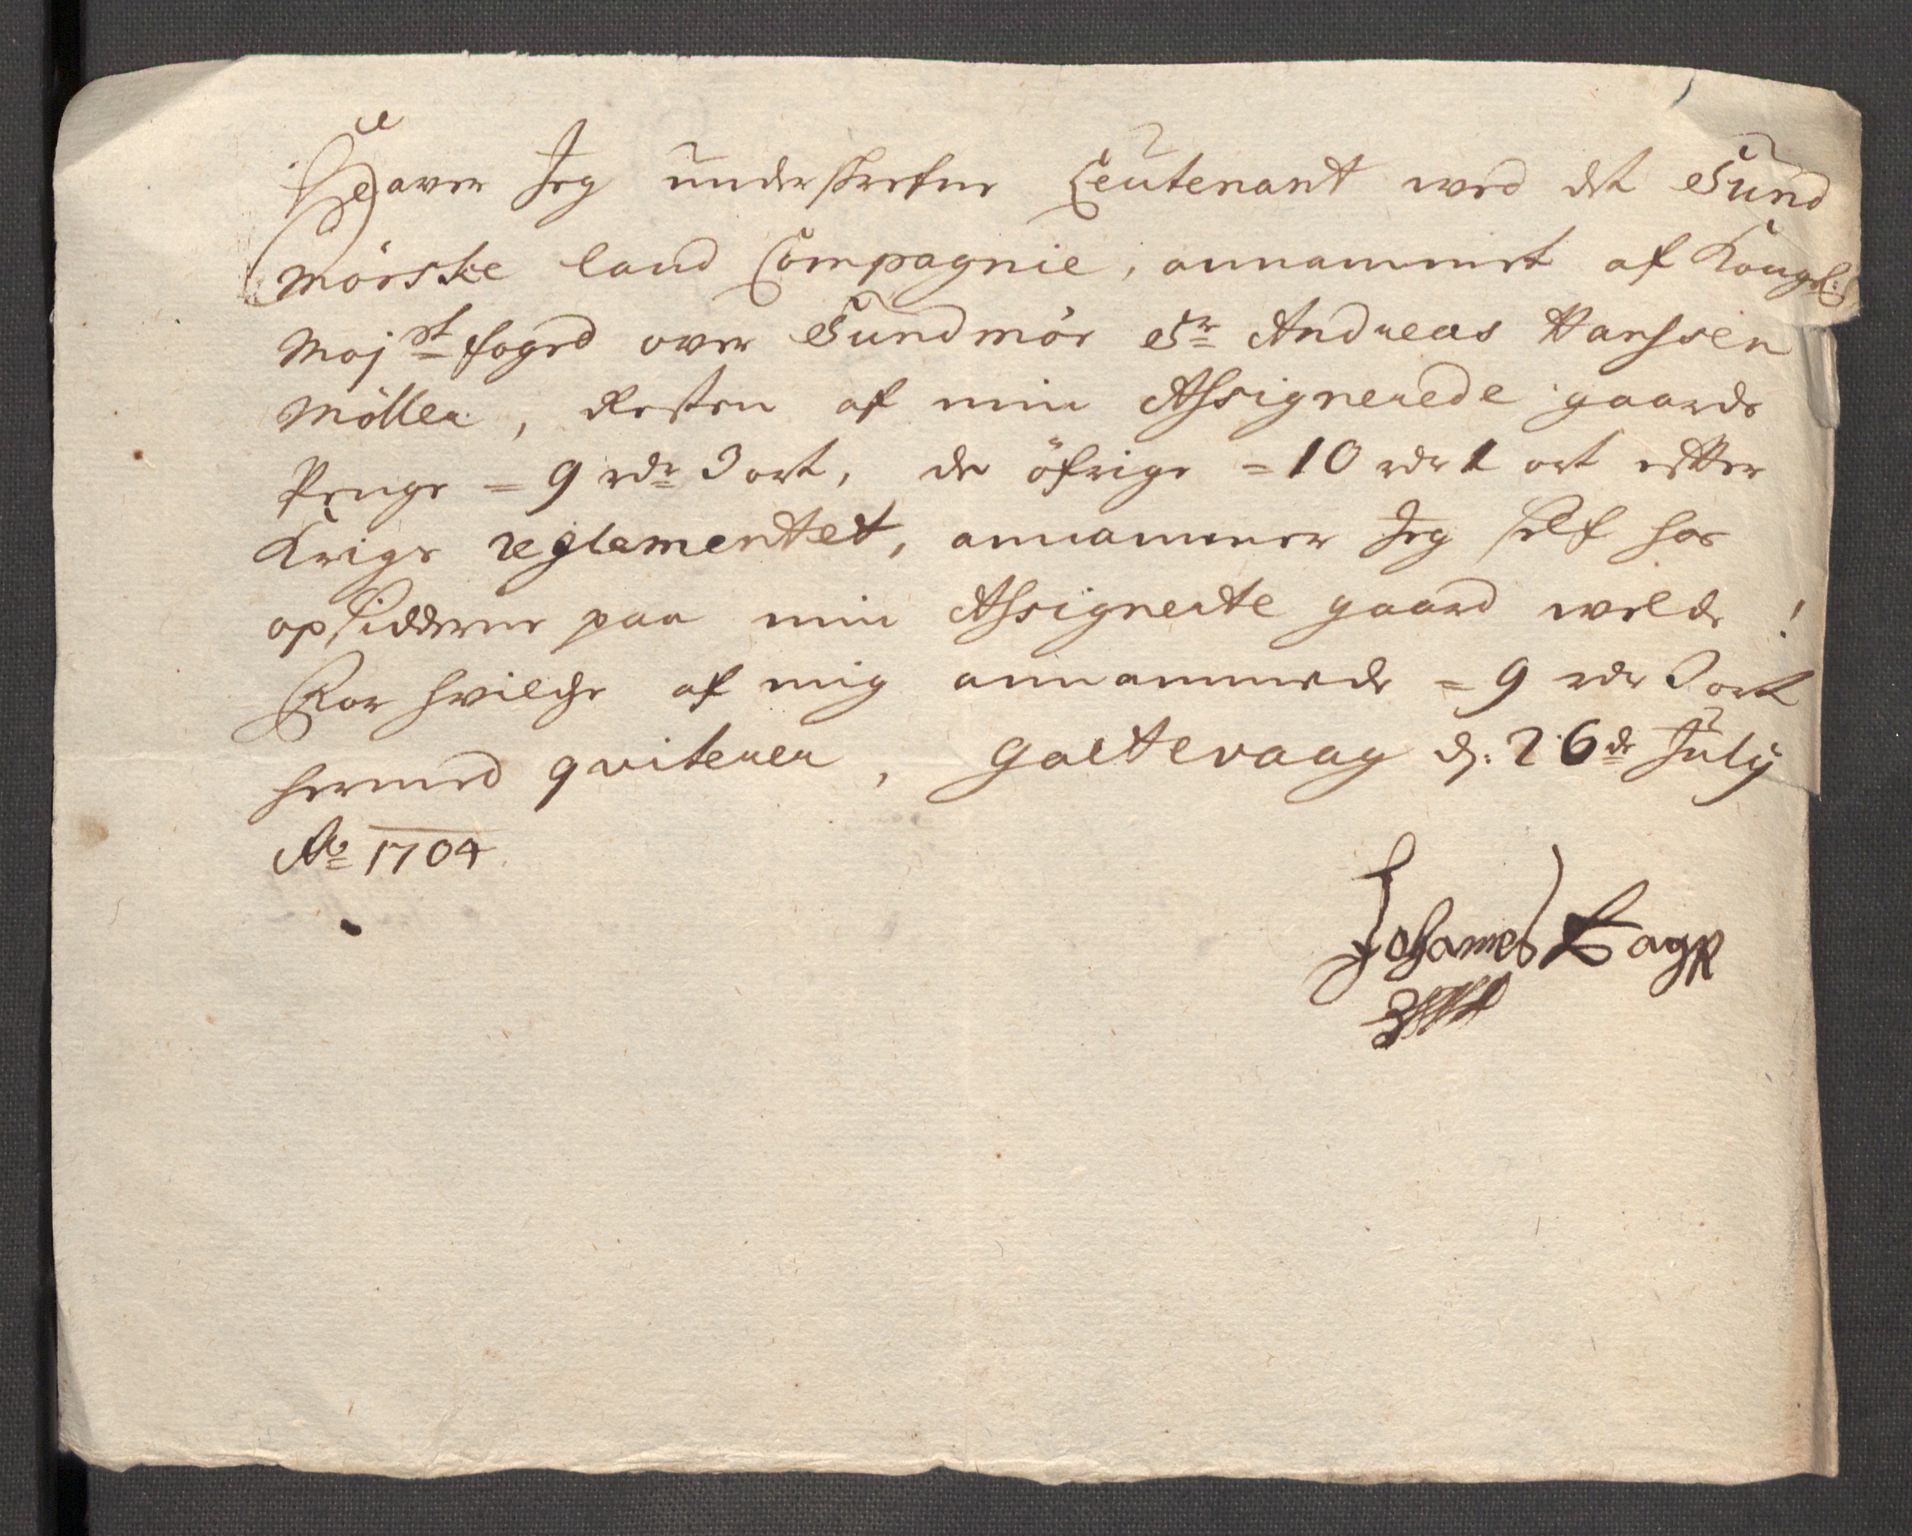 Haver Jeg underskrefne Leutenant wed det Sund
mörske land Compagnie, annammet af Kongl:
Majst foged over Sundmör Sr Andreas Hanssen
Möller, Resten af min Assignerede gaards
Penge = 9 rdr 3 ort, de öfrige = 10 rdr 1 ort efter
Krigs reglamentet, annammer Jeg self hos
opsidderne paa min Assignerte gaard welde!
For hvilche af mig annammede = 9 rdr 3 ort
hermed qviterer, Galtevaag d: 26de July
Ao 1704
Johannes